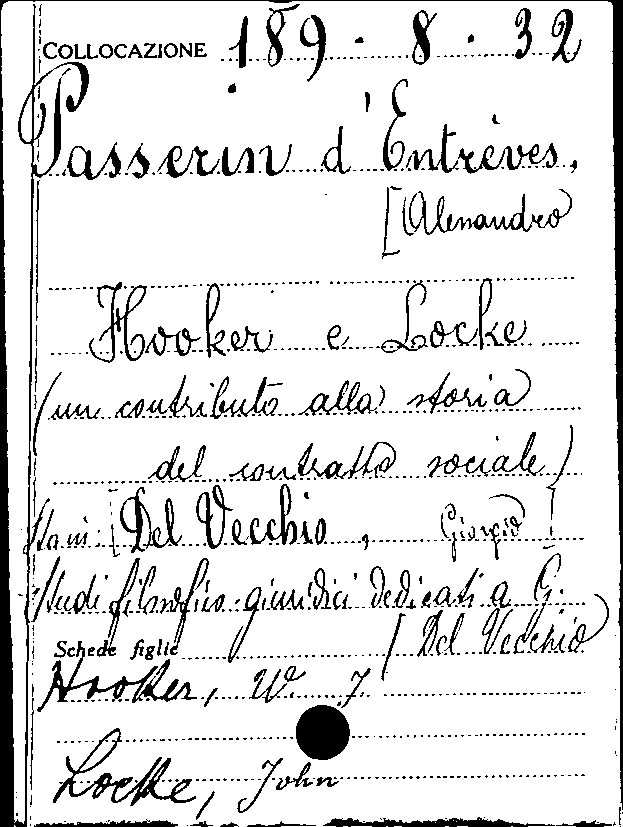 COLLOCAZIONE 189 · 8 · 32
Passerin d'Entrèves,
[Alessandro
Hooker e Locke
(un contributo alla storia
del contratto sociale)
Sta in: [Del Vecchio, Giorgio]
Studi filosofico-giuridici dedicati a G.
[Del Vecchio
Schede figlie
Hooker, W. J.
Locke, John